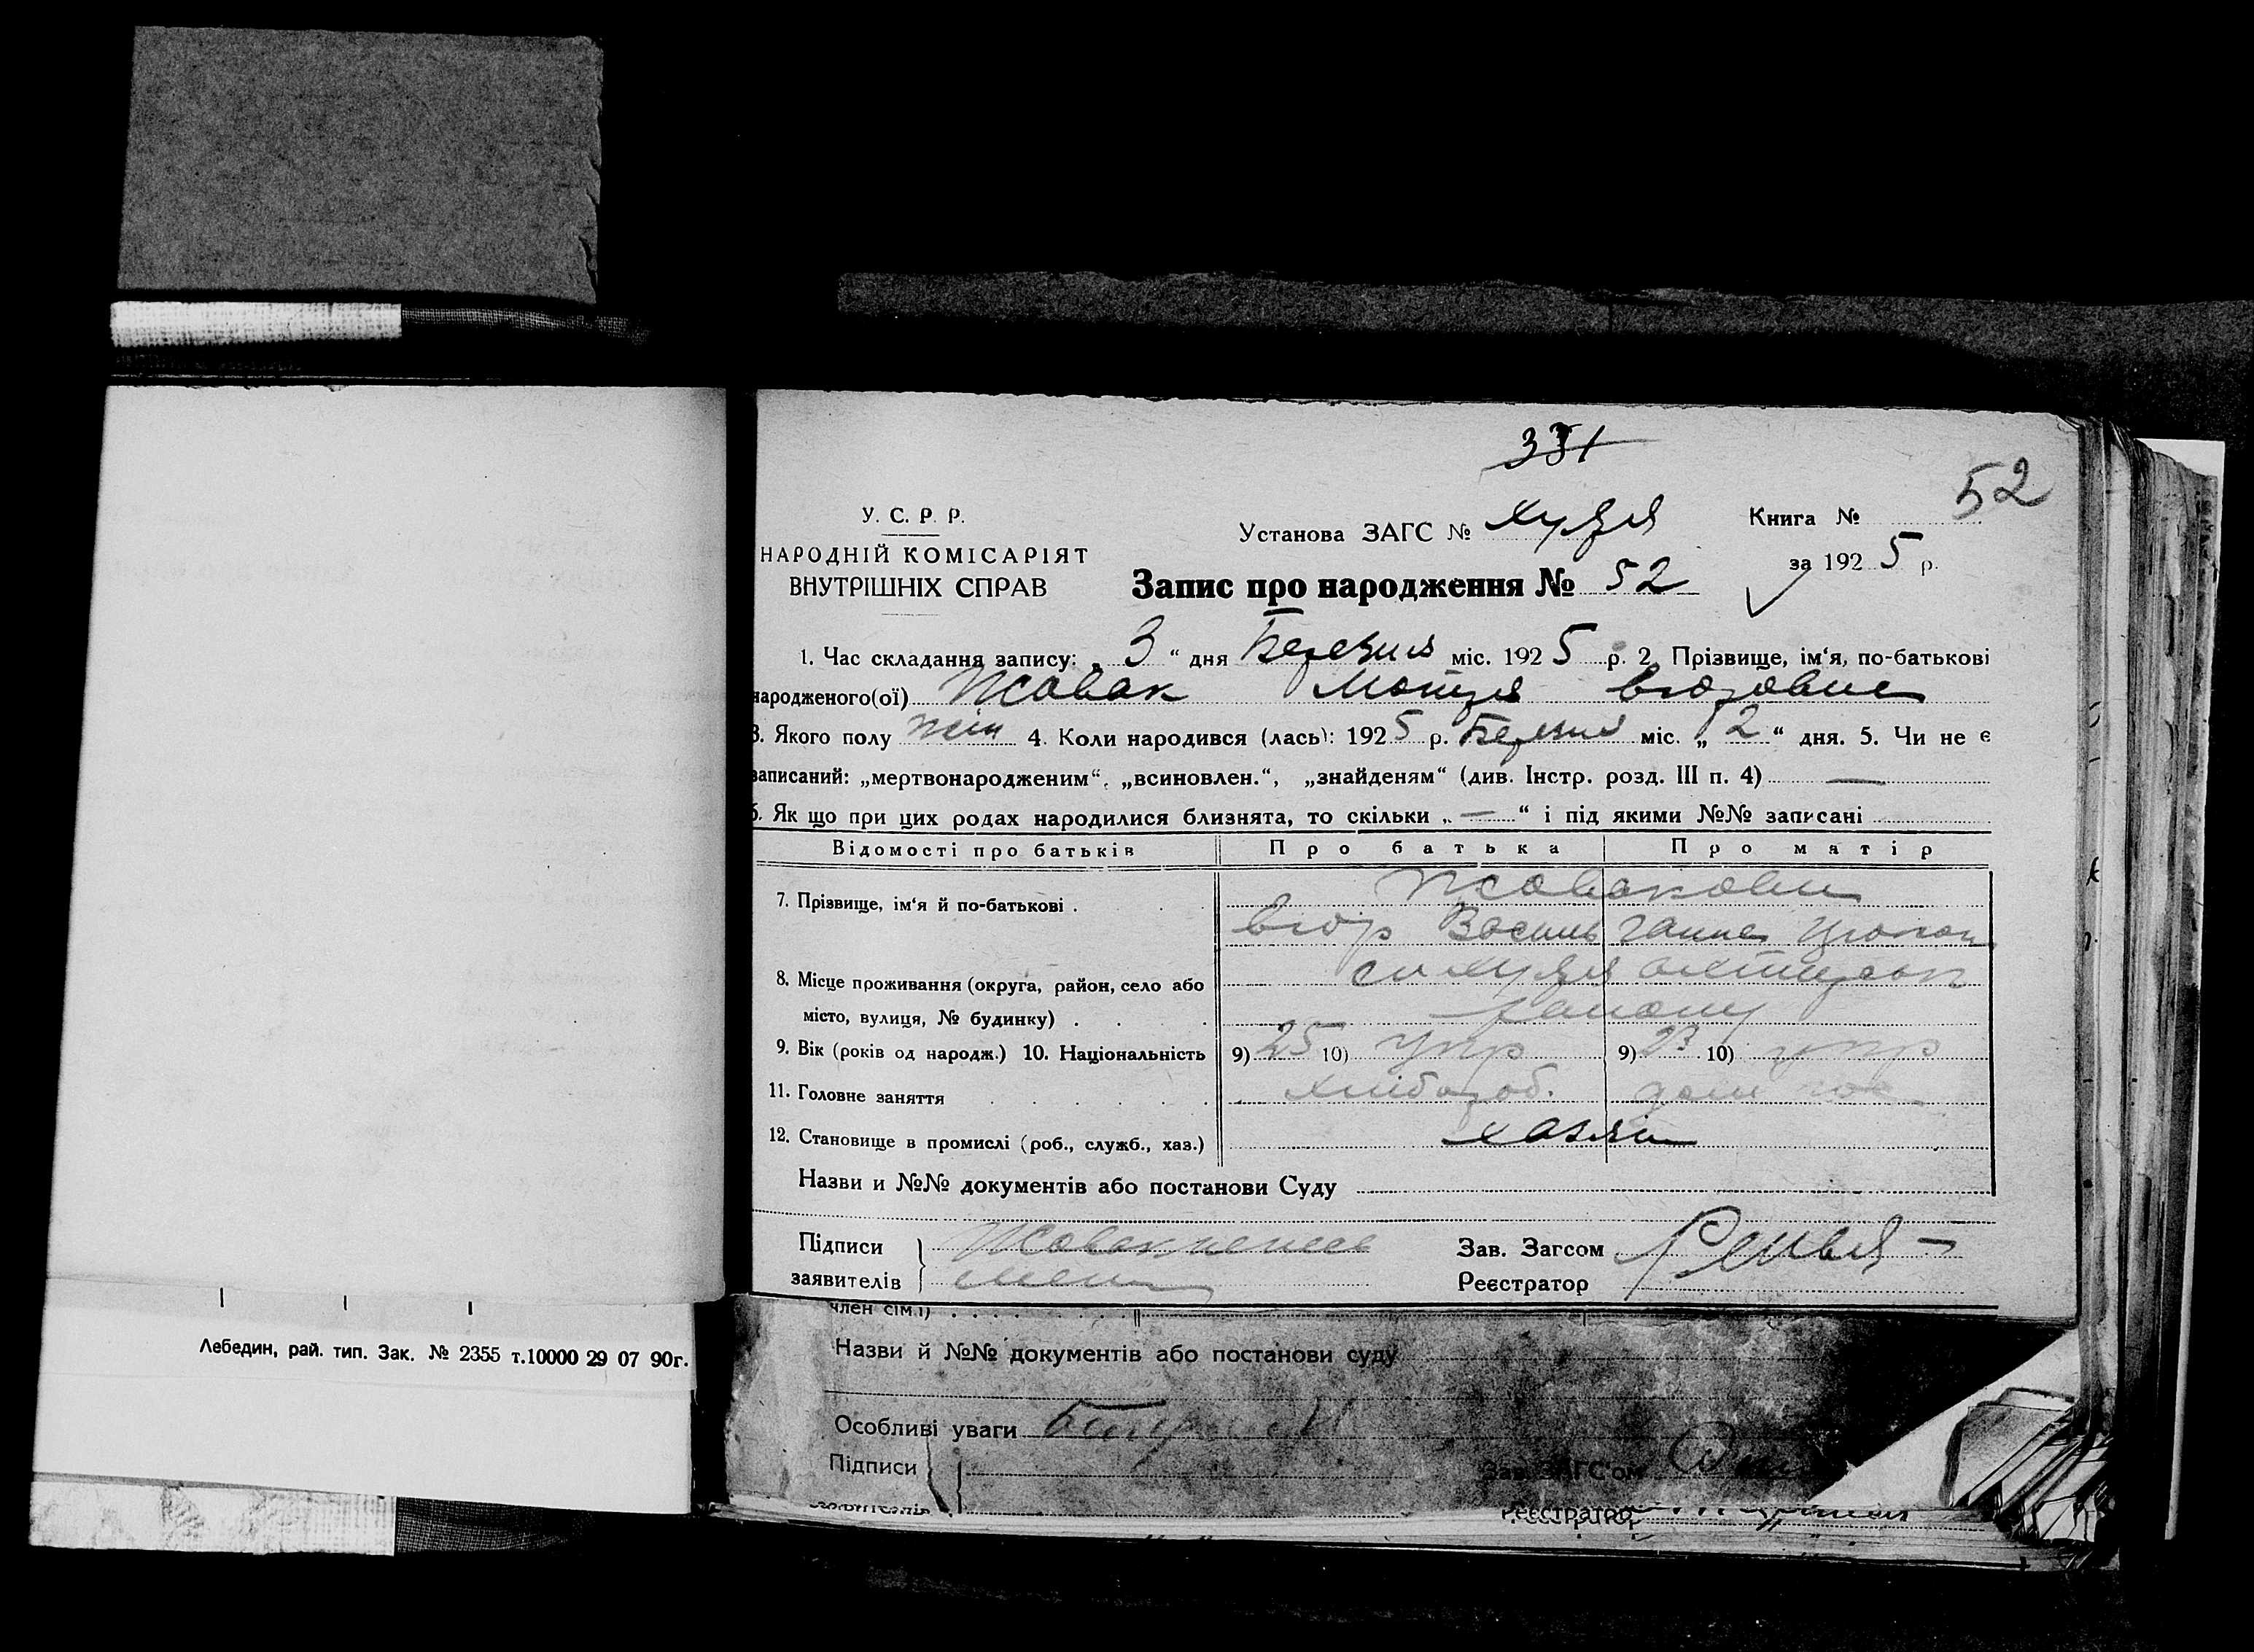 331
52
У. С. Р. Р.
НАРОДНІЙ КОМІСАРІЯТ
ВНУТРІШНІХ СПРАВ
Установа ЗАГС № Хухря
Книга №
за 1925 р.
Запис про народження № 52
1. Час складання запису: „ 3 “ дня Березня міс. 1925 р. 2. Прізвище, ім‘я, по-батькові
народженого(ої) Жовак Мотря
3. Якого полу жін 4. Коли народився (лась): 1925 р. Березня міс. „ 2 “ дня. 5. Чи не є
записаний: „мертвонародженим“, „всиновлен.“, „знайденям“ (див. Інстр. розд. III п. 4) —
6. Як що при цих родах народилися близнята, то скільки „ — “ і під якими №№ записані
Відомості про батьків Про батька Про матір
7. Прізвище, ім‘я й по-батькові .
Василь Ганна
8. Місце проживання (округа, район, село або
місто, вулиця, № будинку) . . . району
9. Вік (років од народж.) 10. Національність 9) 25 10) Укр 9) 23 10) укр
11. Головне заняття . . . . . . хлібороб. дом
12. Становище в промислі (роб., служб., хаз.) хазяін
Назви и №№ документів або постанови Суду
Підписи
заявителів
Жовак
Зав. Загсом
Реєстратор
член сім.ї) . . . . . . . .
Лебедин, рай. тип. Зак. № 2355 т.10000 29 07 90г.
Назви й №№ документів або постанови суду
Особливі уваги
Підписи
заявителів
Зав. ЗАГС'ом
Реєстратор